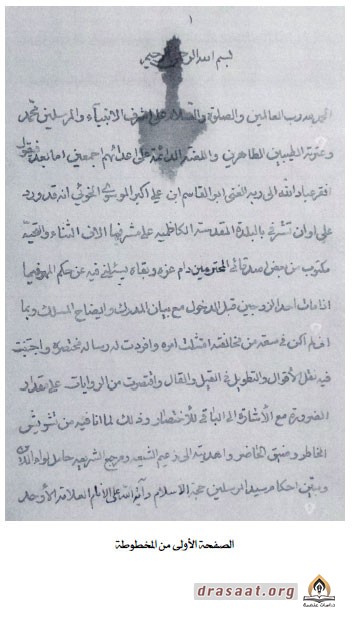 ١
بسم الله الرحمن الرحيم
الحمد لله رب العالمين والصلوة والسلام على اشرف الانبياء والمرسلين محمد
وعترته الطيبين الطاهرين واللعنة الدائمة على اعدائهم اجمعين اما بعد فيقول
افقر عباد الله الى ربه الغنى ابو القاسم ابن على اكبر الموسوي الخوئي انه قد ورد
على اوان تشرفي بالبلدة المقدسة الكاظمية على مشرفها الاف الثناء والتحية
مكتوب من بعض اصدقائي المحترمين دام عزه وبقاه يسئلني فيه عن حكم المهر فيما
اذا مات احد الزوجين قبل الدخول مع بيان المدرك وايضاح المسلك وبما
اني لم اكن في سعة من مخالفته امتثلت امره وافردت له رسالة مختصرة واجتنبت
فيه نقل الأقوال والتطويل في القيل والقال واقتصرت من الروايات على مقدار
الضرورة مع الأشارة الى الباقي للأختصار وذلك لما انا فيه من تشويش
الخاطر وضيق الحاضر واهديته الى زعيم الشيعه ومرجع الشريعه حامل لواء الدين
ومبين احكام سيد المرسلين حجة الاسلام وآية الله على الانام العلامة الأوحد
الصفحة الأولى من المخطوطة
drasaat.org
دراسات علمية